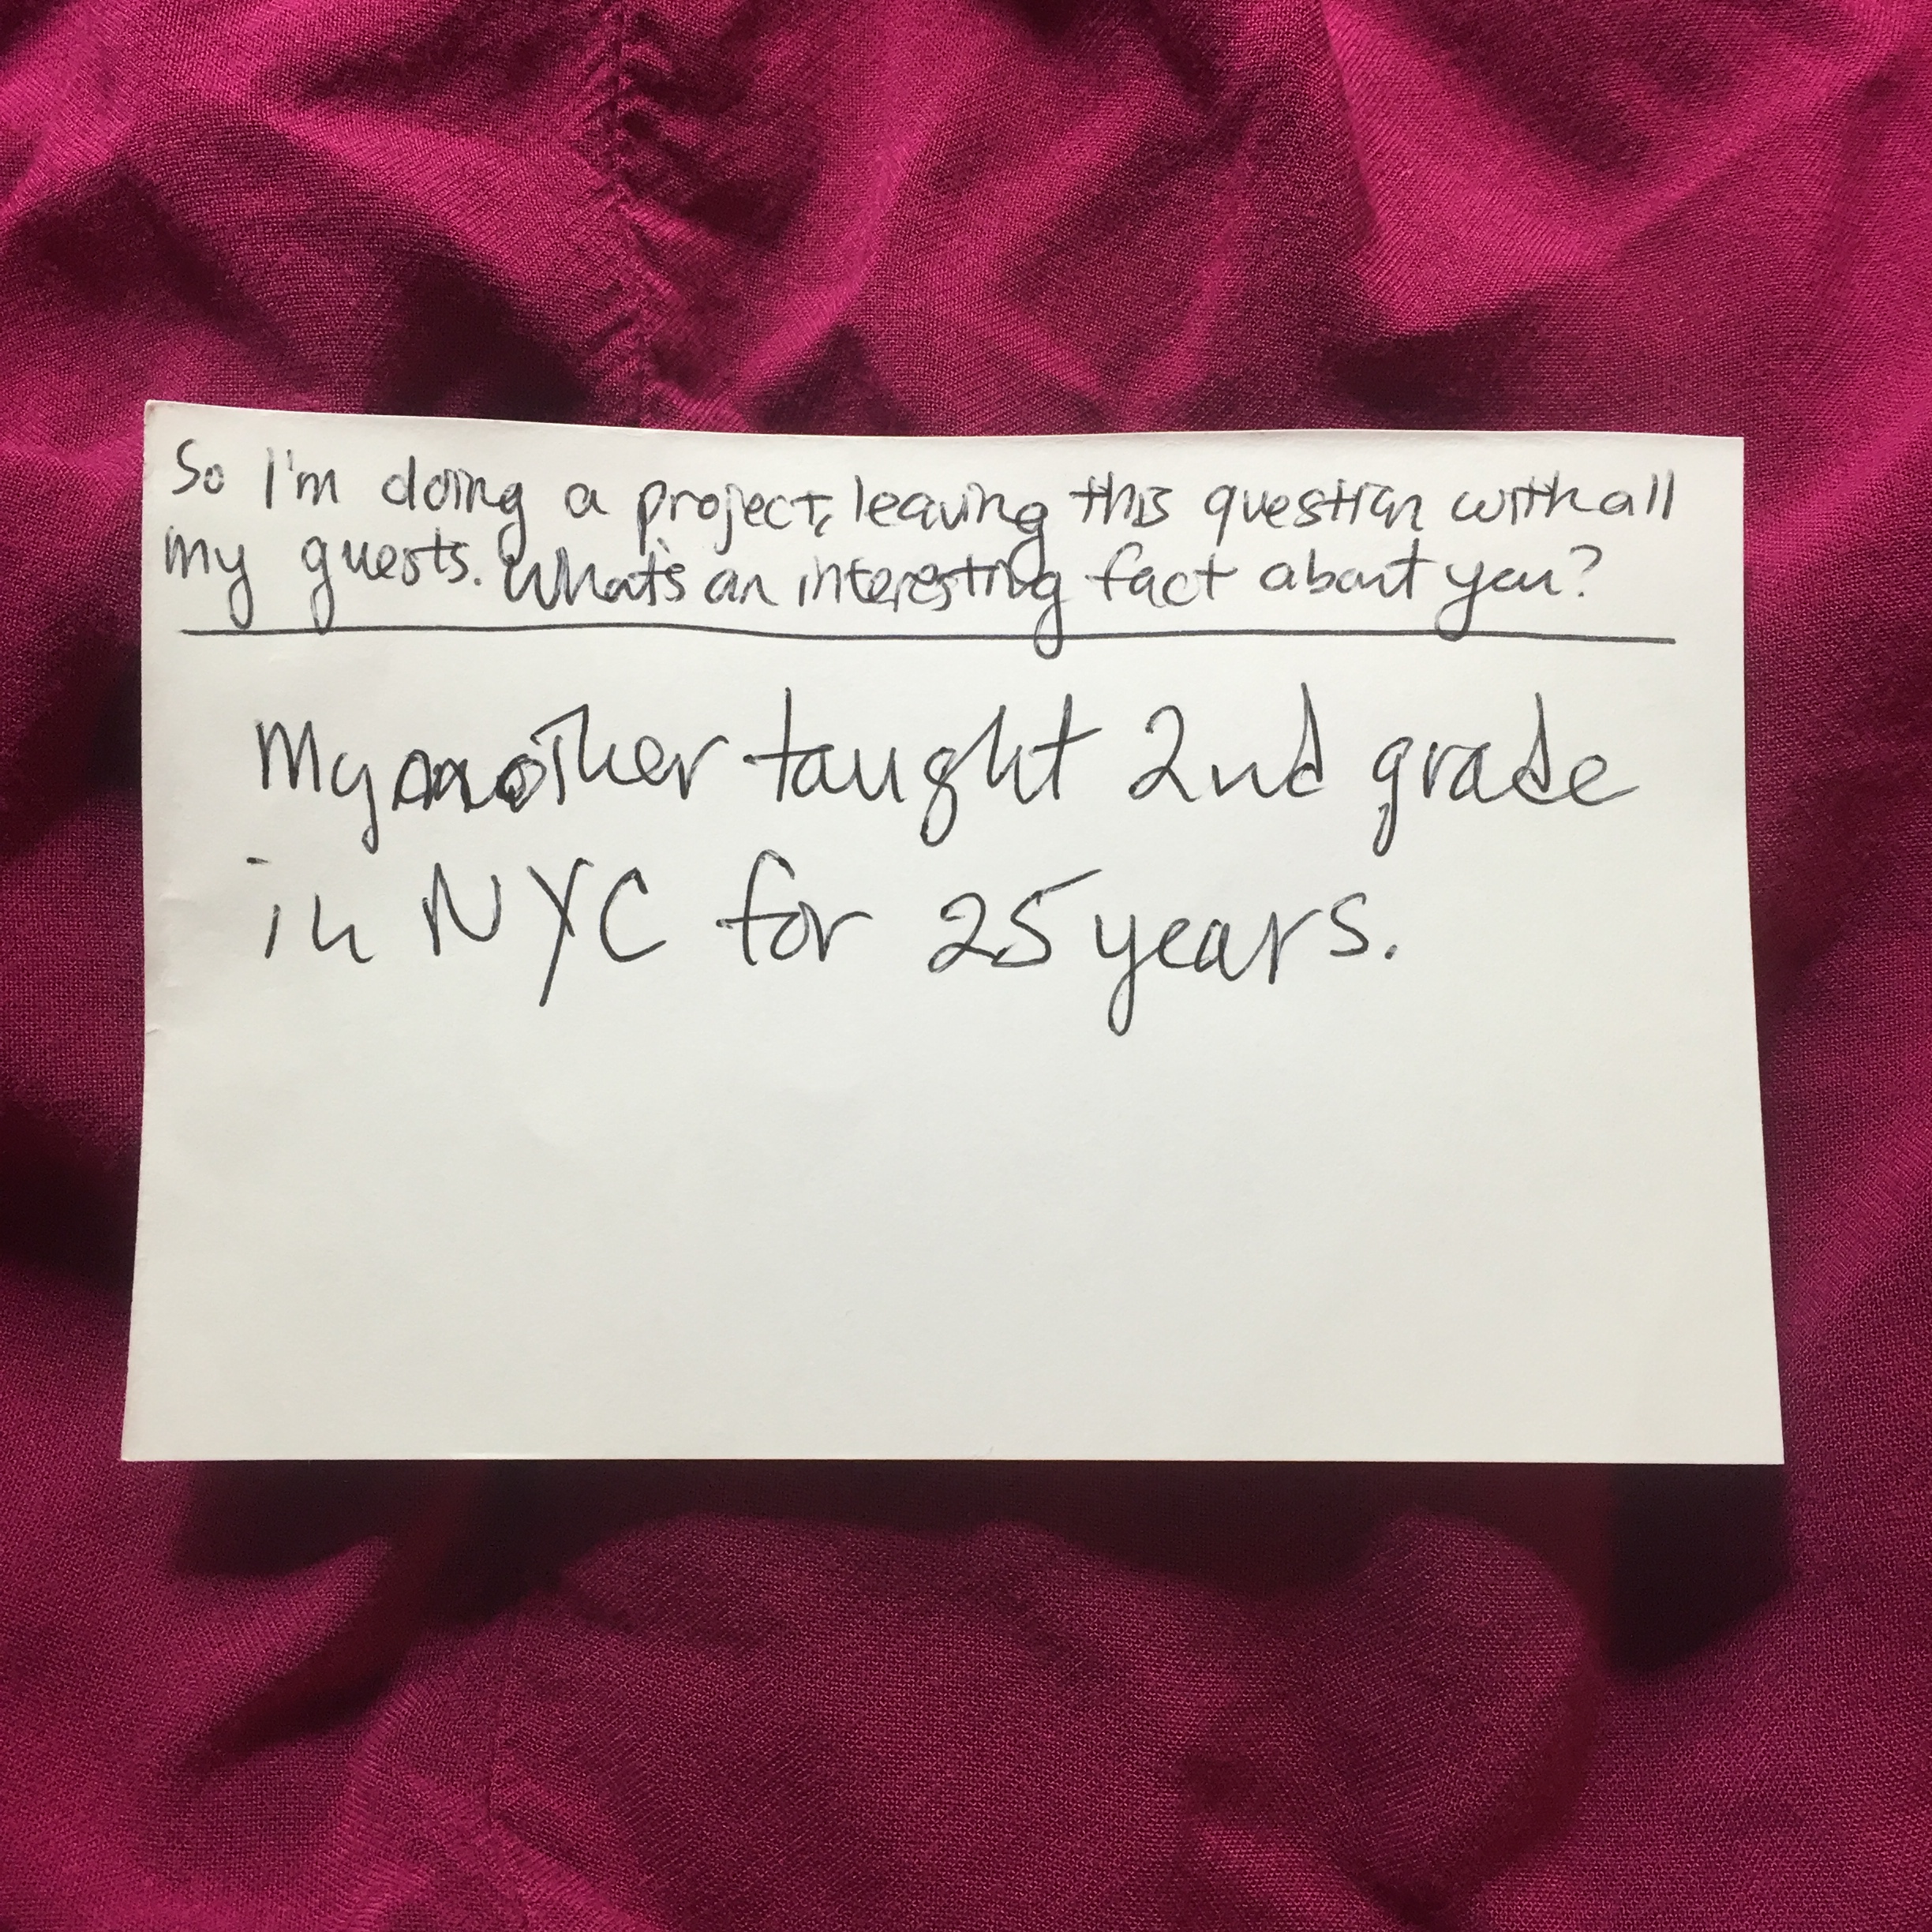 So I'm doing a project, leaving this question with all
my guests. What's an interesting fact about you?
My mother taught 2nd grade
in NYC for 25 years.